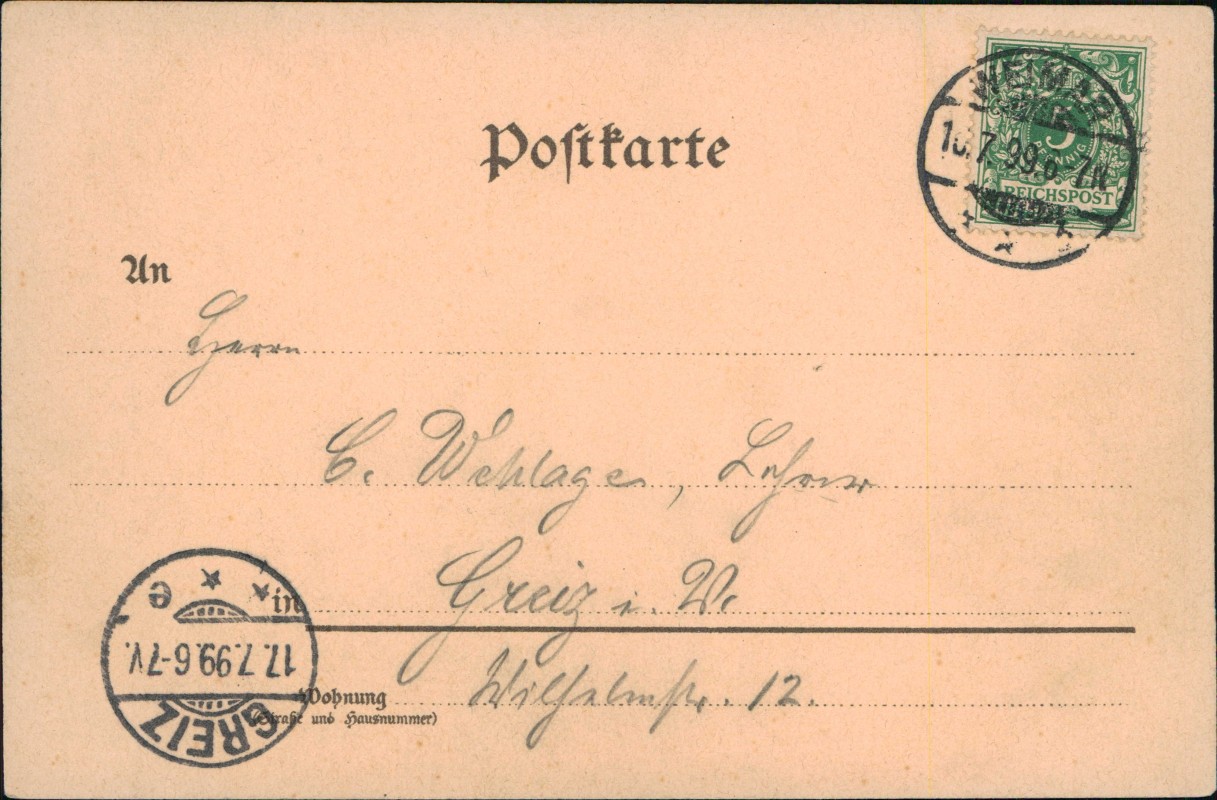 Postkarte
WEIMAR
7.99.6-7N
5
PFENNIG
REICHSPOST
An
Herrn
C. Wehlage, Lehrer
in Greiz i. V.
Wohnung Wilhelmstr. 12.
(Straße und Hausnummer)
GREIZ
17.7.99.6-7V.
* * e